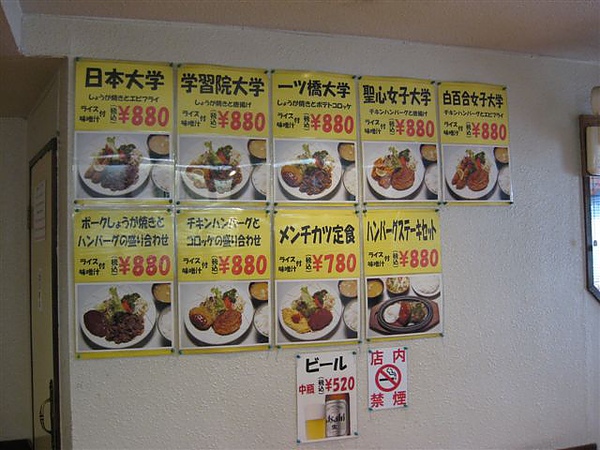 日本大学
しょうが焼きとエビフライ
ライス
味噌汁
付
(税込)
¥880
学習院大学
しょうが焼きと唐揚げ
ライス
味噌汁
付
(税込)
¥880
一ツ橋大学
しょうが焼きとポテトコロッケ
ライス
味噌汁
付
(税込)
¥880
聖心女子大学
チキンハンバーグと唐揚げ
ライス
味噌汁
付
(税込)
¥880
白百合女子大学
チキンハンバーグとエビフライ
ライス
味噌汁
付
(税込)
¥880
ポークしょうが焼きと
ハンバーグの盛り合わせ
ライス
味噌汁
付
(税込)
¥880
チキンハンバーグと
コロッケの盛り合わせ
ライス
味噌汁
付
(税込)
¥880
メンチカツ定食
ライス
味噌汁
付
(税込)
¥780
ハンバーグステーキセット
ライス
味噌汁
付
(税込)
¥880
ビール
中瓶
(税込)
¥520
Asahi
店内
禁煙